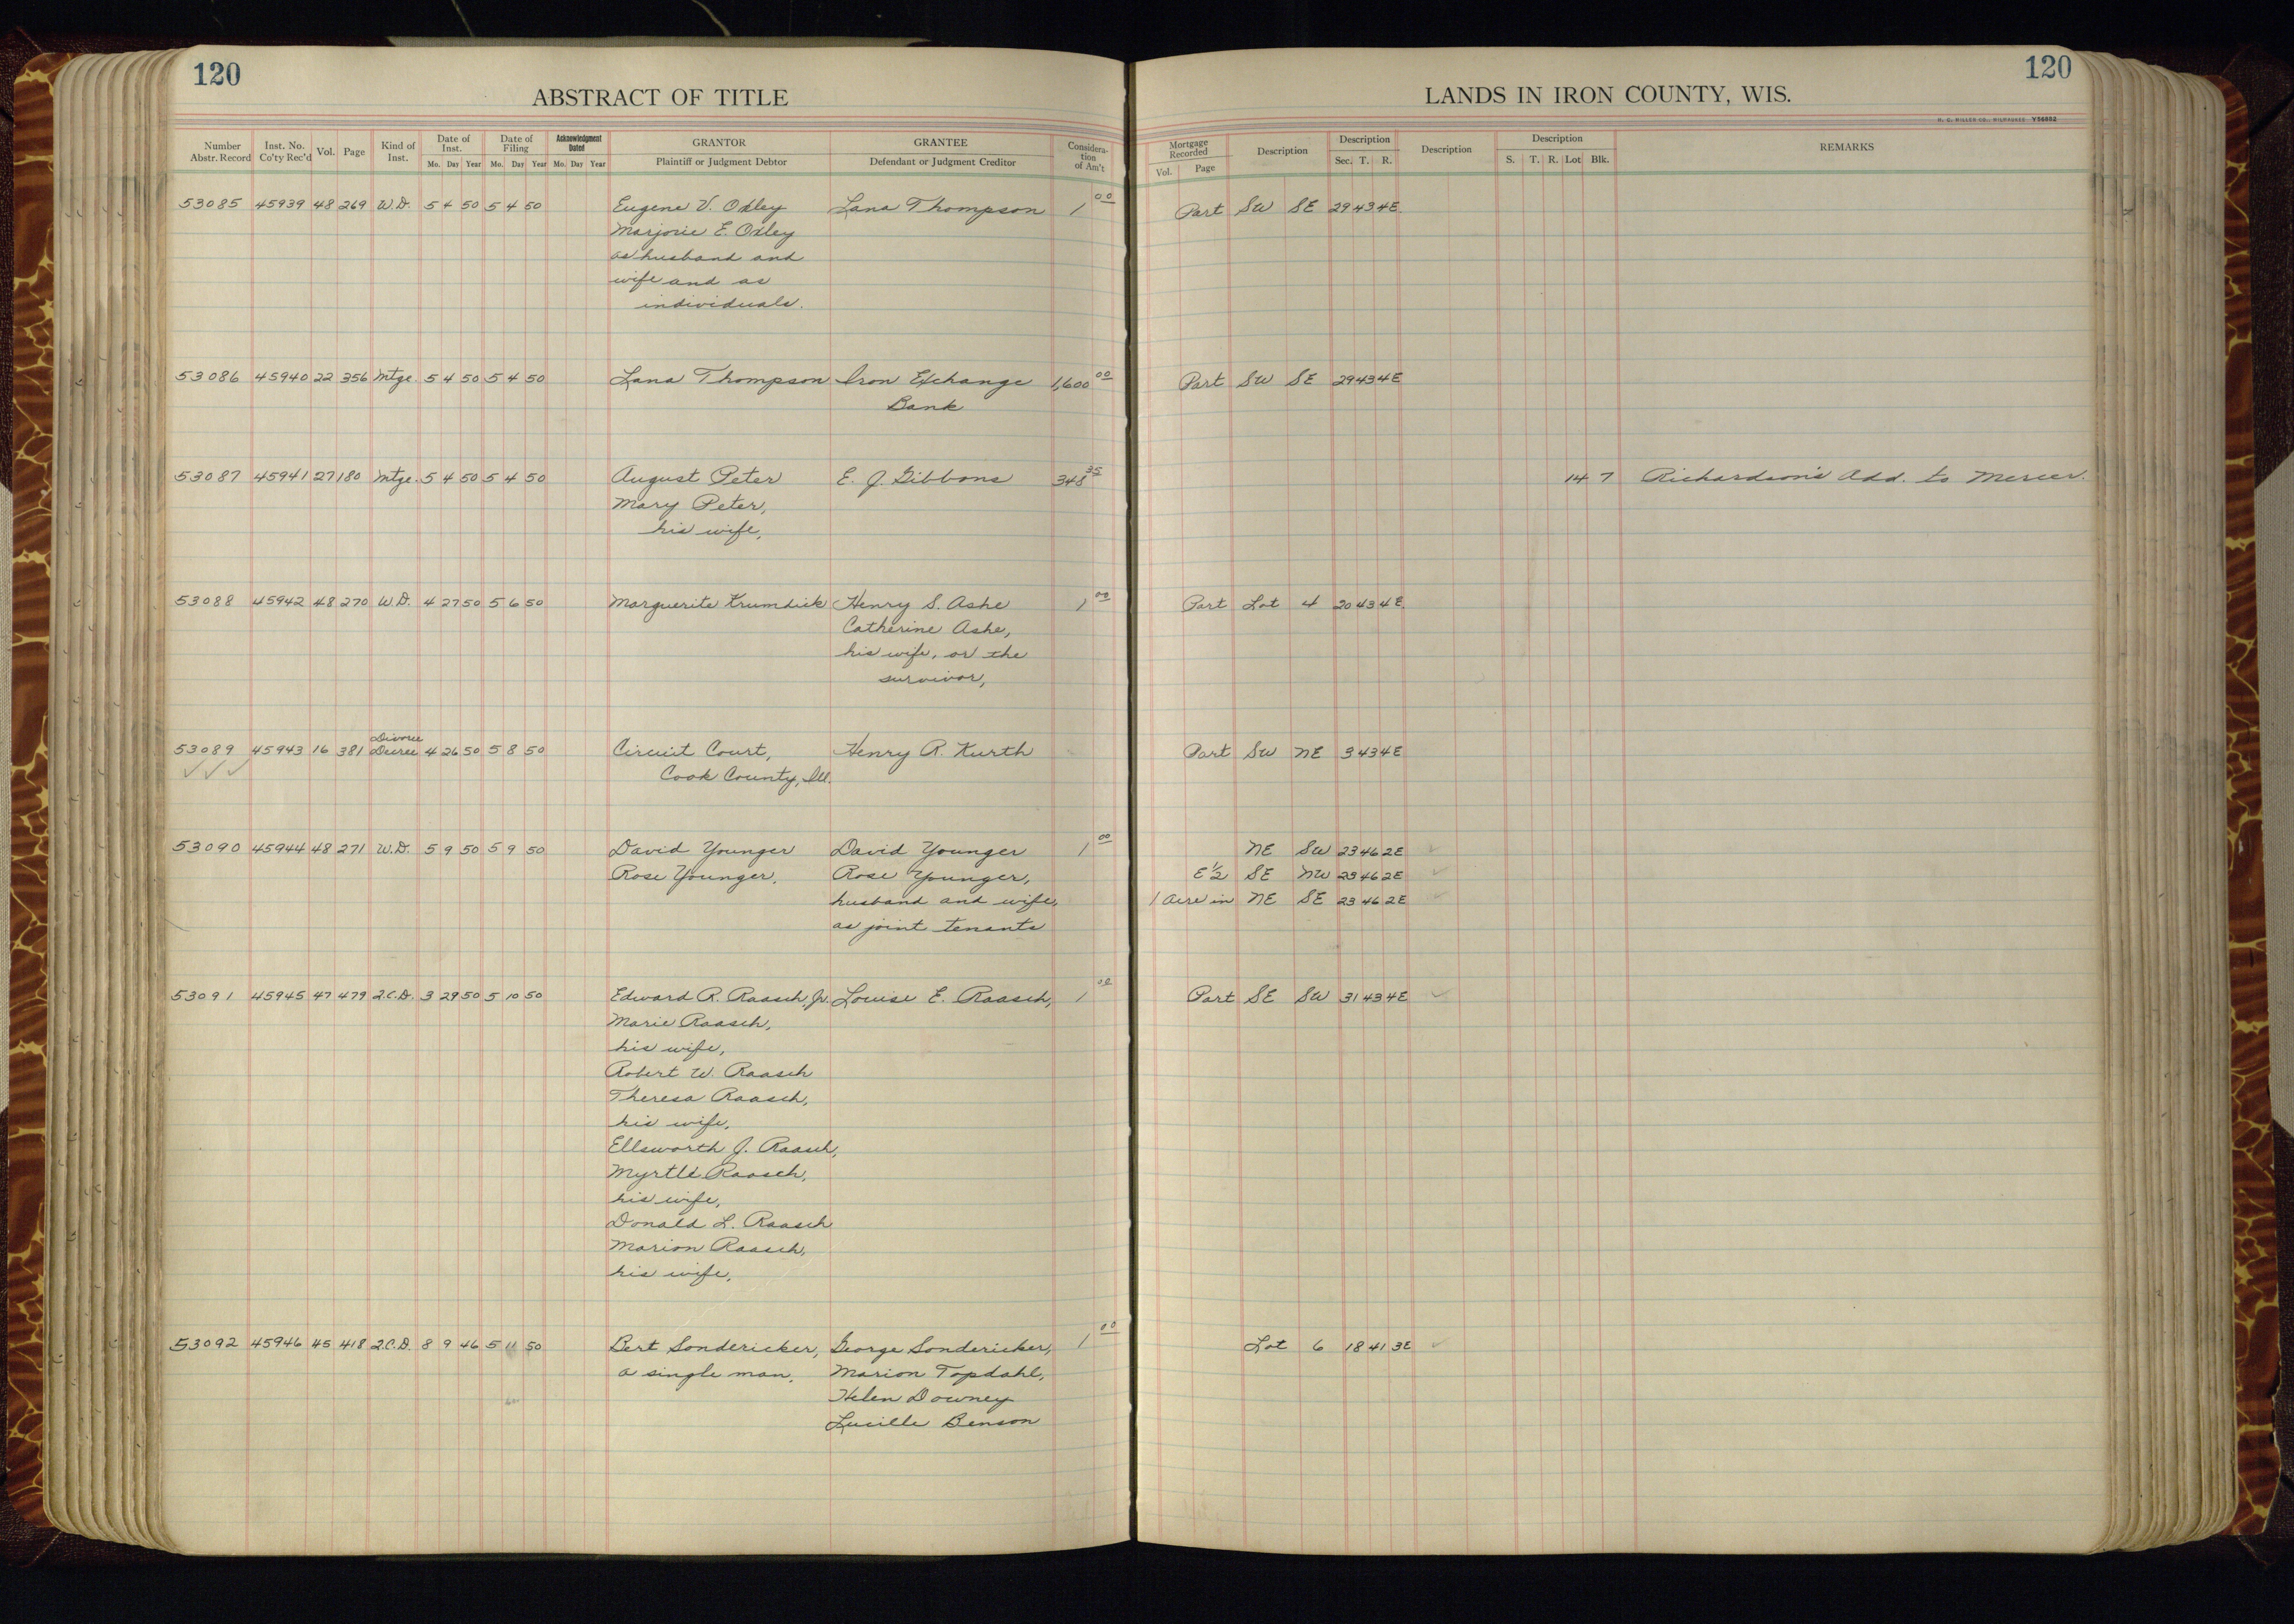 120
ABSTRACT OF TITLE
Number Abstr. Record Inst. No. Co'ty Rec'd Vol. Page Kind of Inst. Date of Inst. Mo. Day Year Date of Filing Mo. Day Year Acknowledgment Dated Mo. Day Year GRANTOR Plaintiff or Judgment Debtor GRANTEE Defendant or Judgment Creditor Considera-tion of Am't
53085 45939 48 269 W.D. 5 4 50 5 4 50 Eugene V. Oxley Lana Thompson 1 00
Marjorie E. Oxley
as husband and
wife and as
individuals.
53086 45940 22 356 Mtge. 5 4 50 5 4 50 Lana Thompson Iron Exchange 1,600 00
Bank
53087 45941 27 180 Mtge. 5 4 50 5 4 50 August Peter E. J. Gibbons 348 35
Mary Peter,
his wife,
53088 45942 48 270 W.D. 4 27 50 5 6 50 Marguerite Krumdick Henry S. Ashe 1 00
Catherine Ashe,
his wife, or the
survivor,
Divorce
53089 45943 16 381 Decree 4 26 50 5 8 50 Circuit Court, Henry R. Kurth
Cook County, Ill.
53090 45944 48 271 W.D. 5 9 50 5 9 50 David Younger David Younger 1 00
Rose Younger. Rose Younger,
husband and wife,
as joint tenants
53091 45945 47 479 2.C.D. 3 29 50 5 10 50 Edward R. Raasch, Jr. Louise E. Raasch, 1 00
Marie Raasch,
his wife,
Robert W. Raasch
Theresa Raasch,
his wife,
Ellsworth J. Raasch,
Myrtle Raasch,
his wife,
Donald L. Raasch
Marion Raasch,
his wife,
53092 45946 45 418 2.C.D. 8 9 46 5 11 50 Bert Sondericker, George Sondericker, 1 00
a single man. Marion Topdahl,
Helen Downey
Lucille Benson
120
LANDS IN IRON COUNTY, WIS.
H. C. MILLER CO., MILWAUKEE Y56552
Mortgage Recorded Vol. Page Description Description Sec. T. R. Description Description S. T. R. Lot Blk. REMARKS
Part SW SE 29 43 4E
Part SW SE 29 43 4E
14 7 Richardson's Add. to Mercer.
Part Lot 4 20 43 4E
Part SW NE 3 43 4E
NE SW 23 46 2E
E 1/2 SE NW 23 46 2E
1 Acre in NE SE 23 46 2E
Part SE SW 31 43 4E
Lot 6 18 41 3E